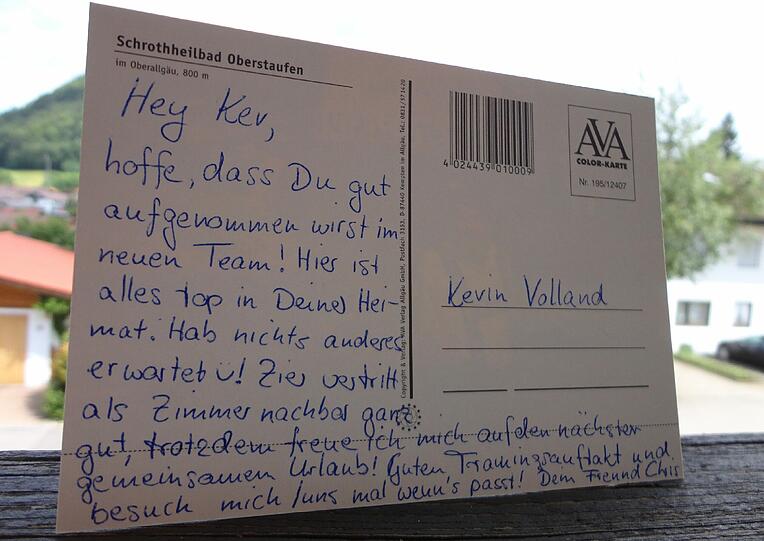 Schrothheilbad Oberstaufen
im Oberallgäu, 800 m
Hey Kev,
hoffe, dass Du gut
aufgenommen wirst im
neuen Team! Hier ist
alles top in Deiner Hei-
mat. Hab nichts anderes
erwartet ü! Zies vertritt
als Zimmernachbar ganz
gut, trotzdem freue ich mich auf den nächsten
gemeinsamen Urlaub! Guten Trainingsauftakt und
besuch mich/uns mal wenn's passt! Dein Freund Chris
Copyright & Verlag: AVA Verlag Allgäu GmbH, Postfach 3153, D-87440 Kempten im Allgäu, Tel.: 0831/571420
4 024439 010009
AVA
COLOR-KARTE
Nr. 195/12407
Kevin Volland